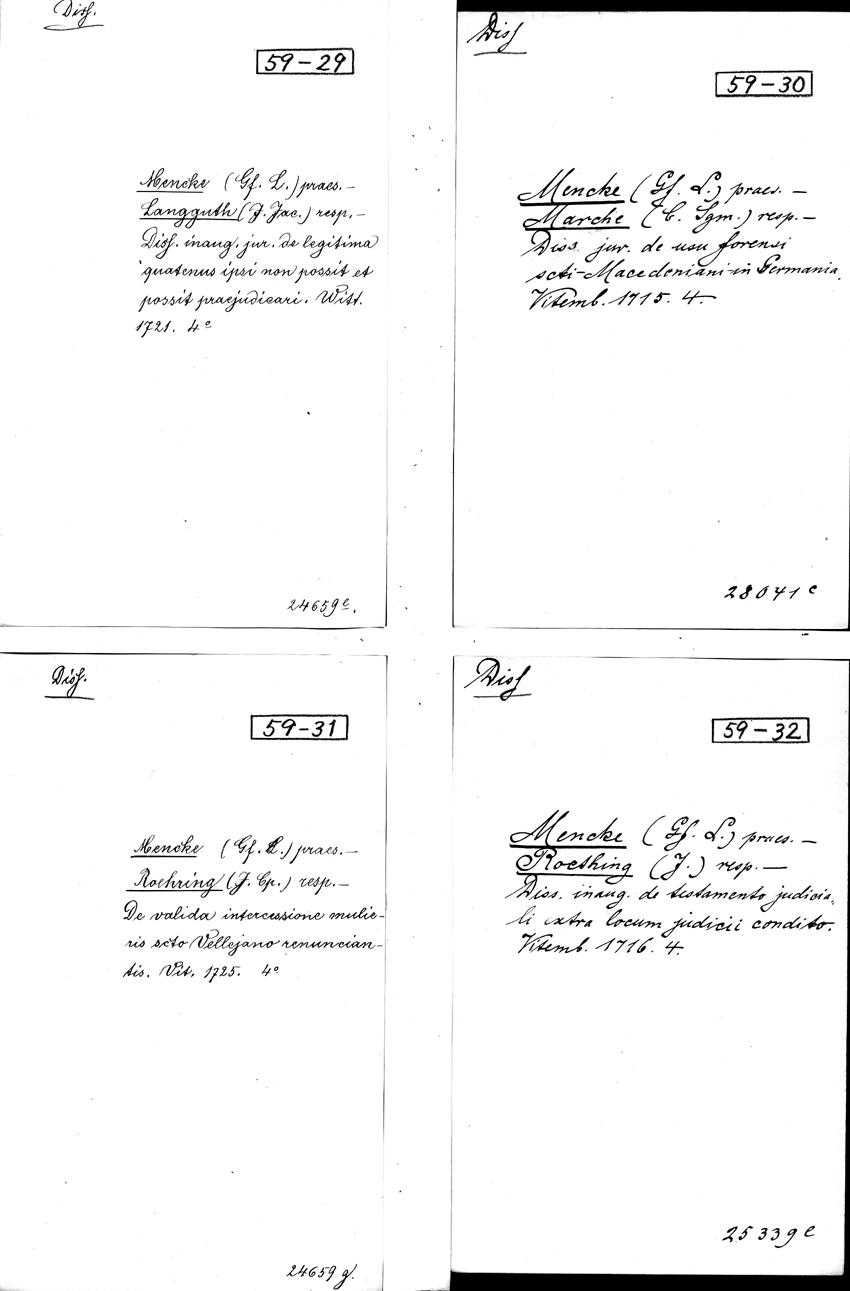 Diss.
59-29
Mencke (Gf. L.) praes. –
Langguth (J. Jac.) resp. –
Diss. inaug. jur. de legitima
quatenus ipsi non possit et
possit praejudicari. Witt.
1721. 4o
24659e.
Diss
59-30
Mencke (Gf. L.) praes. –
Marche (C. Sgm.) resp. –
Diss. jur. de usu forensi
scti-Macedoniani in Germania.
Vitemb. 1715. 4.
28041c
Diss.
59-31
Mencke (Gf. L.) praes. –
Roehring (J. Cp.) resp. –
De valida intercessione mulie-
ris scto Vellejano renuncian-
tis. Vit. 1725. 4o
24659g.
Diss
59-32
Mencke (Gf. L.) praes. –
(J.) resp. –
Diss. inaug. de testamento judicia-
li extra locum judicii condito.
Vitemb. 1716. 4.
25339e